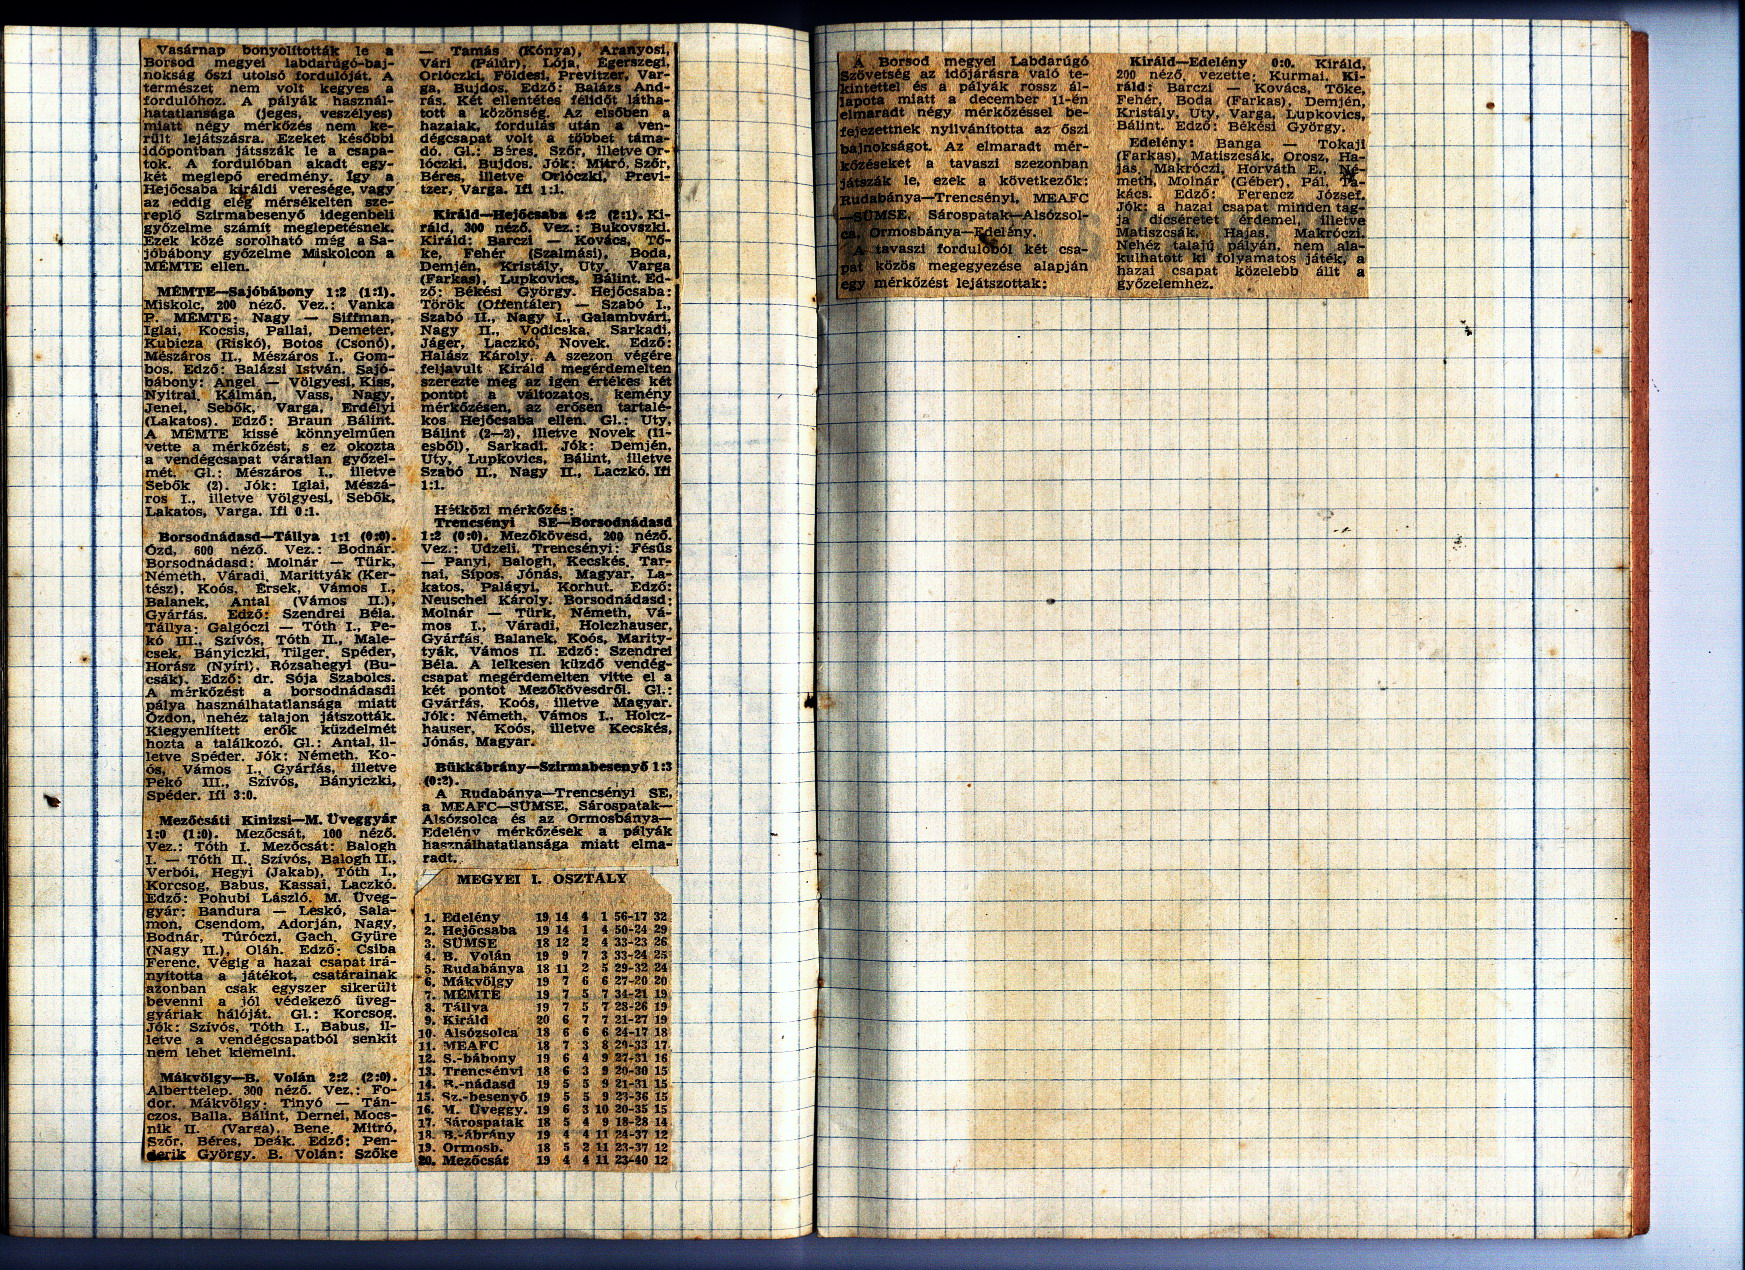 Vasárnap bonyolították le a
Borsod megyei labdarúgó-baj-
nokság őszi utolsó fordulóját. A
természet nem volt kegyes a
fordulóhoz. A pályák használ-
hatatlansága (jeges, veszélyes)
miatt négy mérkőzés nem ke-
rült lejátszásra. Ezeket későbbi
időpontban játsszák le a csapa-
tok. A fordulóban akadt egy-
két meglepő eredmény. Így a
Hejőcsaba királdi veresége, vagy
az eddig elég mérsékelten sze-
replő Szirmabesenyő idegenbeli
győzelme számít meglepetésnek.
Ezek közé sorolható még a Sa-
jóbábony győzelme Miskolcon a
MÉMTE ellen.
MÉMTE—Sajóbábony 1:2 (1:1).
Miskolc, 200 néző. Vez.: Vanka
P. MÉMTE: Nagy — Siffman,
Iglai, Kocsis, Pallai, Demeter,
Kubicza (Riskó), Botos (Csonó),
Mészáros II., Mészáros I., Gom-
bos. Edző: Balázsi István. Sajó-
bábony: Angel — Völgyesi, Kiss,
Nyitrai, Kálmán, Vass, Nagy,
Jenei, Sebők, Varga, Erdélyi
(Lakatos). Edző: Braun Bálint.
A MÉMTE kissé könnyelműen
vette a mérkőzést, s ez okozta
a vendégcsapat váratlan győzel-
mét. Gl.: Mészáros I., illetve
Sebők (2). Jók: Iglai, Mészá-
ros I., illetve Völgyesi, Sebők,
Lakatos, Varga. Ifi 0:1.
Borsodnádasd—Tállya 1:1 (0:0).
Ózd, 600 néző. Vez.: Bodnár.
Borsodnádasd: Molnár — Türk,
Németh, Váradi, Marittyák (Ker-
tész), Koós, Érsek, Vámos I.,
Balanek, Antal (Vámos II.),
Gyárfás. Edző: Szendrei Béla.
Tállya: Galgóczi — Tóth I., Pe-
kó III., Szívós, Tóth II., Male-
csek, Bányiczki, Tilger, Spéder,
Horász (Nyíri), Rózsahegyi (Bu-
csák). Edző: dr. Sója Szabolcs.
A mérkőzést a borsodnádasdi
pálya használhatatlansága miatt
Ózdon, nehéz talajon játszották.
Kiegyenlített erők küzdelmét
hozta a találkozó. Gl.: Antal, il-
letve Spéder. Jók: Németh, Ko-
ós, Vámos I., Gyárfás, illetve
Pekó III., Szívós, Bányiczki,
Spéder. Ifi 3:0.
Mezőcsáti Kinizsi—M. Üveggyár
1:0 (1:0). Mezőcsát, 100 néző.
Vez.: Tóth I. Mezőcsát: Balogh
I. — Tóth II., Szívós, Balogh II.,
Verbói, Hegyi (Jakab), Tóth I.,
Korcsog, Babus, Kassai, Laczkó.
Edző: Pohubi László. M. Üveg-
gyár: Bandura — Leskó, Sala-
mon, Csendom, Adorján, Nagy,
Bodnár, Túróczi, Gach, Gyüre
(Nagy II.), Oláh. Edző: Csiba
Ferenc. Végig a hazai csapat irá-
nyította a játékot, csatárainak
azonban csak egyszer sikerült
bevenni a jól védekező üveg-
gyáriak hálóját. Gl.: Korcsog.
Jók: Szívós, Tóth I., Babus, il-
letve a vendégcsapatból senkit
nem lehet kiemelni.
Mákvölgy—B. Volán 2:2 (2:0).
Alberttelep. 300 néző. Vez.: Fo-
dor. Mákvölgy: Tinyó — Tán-
czos, Balla, Bálint, Dernei, Mocs-
nik II. (Varga), Bene, Mitró,
Szőr, Béres, Deák. Edző: Pen-
derik György. B. Volán: Szőke
— Tamás (Kónya), Aranyosi,
Vári (Pálúr), Lója, Egerszegi,
Orlóczki, Földesi, Previtzer, Var-
ga, Bujdos. Edző: Balázs And-
rás. Két ellentétes félidőt látha-
tott a közönség. Az elsőben a
hazaiak, fordulás után a ven-
dégcsapat volt a többet táma-
dó. Gl.: Béres, Szőr, illetve Or-
lóczki, Bujdos. Jók: Mitró, Szőr,
Béres, illetve Orlóczki, Previ-
tzer, Varga. Ifi 1:1.
Királd—Hejőcsaba 4:2 (2:1). Ki-
ráld, 300 néző. Vez.: Bukovszki.
Királd: Barczi — Kovács, Tő-
ke, Fehér (Szalmási), Boda,
Demjén, Kristály, Uty, Varga
(Farkas), Lupkovics, Bálint. Ed-
ző: Békési György. Hejőcsaba:
Török (Offentáler) — Szabó I.,
Szabó II., Nagy I., Galambvári,
Nagy II., Vodicska, Sarkadi,
Jáger, Laczkó, Novek. Edző:
Halász Károly. A szezon végére
feljavult Királd megérdemelten
szerezte meg az igen értékes két
pontot a változatos, kemény
mérkőzésen, az erősen tartalé-
kos Hejőcsaba ellen. Gl.: Uty,
Bálint (2—2), illetve Novek (11-
esből), Sarkadi. Jók: Demjén,
Uty, Lupkovics, Bálint, illetve
Szabó II., Nagy II., Laczkó. Ifi
1:1.
Hétközi mérkőzés:
Trencsényi SE—Borsodnádasd
1:2 (0:0). Mezőkövesd, 200 néző.
Vez.: Udzeli. Trencsényi: Fésűs
— Panyi, Balogh, Kecskés, Tar-
nai, Sipos, Jónás, Magyar, La-
katos, Palágyi, Korhut. Edző:
Neuschel Károly. Borsodnádasd:
Molnár — Türk, Németh, Vá-
mos I., Váradi, Holczhauser,
Gyárfás, Balanek, Koós, Marity-
tyák, Vámos II. Edző: Szendrei
Béla. A lelkesen küzdő vendég-
csapat megérdemelten vitte el a
két pontot Mezőkövesdről. Gl.:
Gyárfás, Koós, illetve Magyar.
Jók: Németh, Vámos I., Holcz-
hauser, Koós, illetve Kecskés,
Jónás, Magyar.
Bükkábrány—Szirmabesenyő 1:3
(0:2).
A Rudabánya—Trencsényi SE,
a MEAFC—SÜMSE, Sárospatak—
Alsózsolca és az Ormosbánya—
Edelény mérkőzések a pályák
használhatatlansága miatt elma-
radt.
MEGYEI I. OSZTÁLY
1. Edelény 19 14 4 1 56-17 32
2. Hejőcsaba 19 14 1 4 50-24 29
3. SÜMSE 18 12 2 4 33-23 26
4. B. Volán 19 9 7 3 33-24 25
5. Rudabánya 18 11 2 5 29-32 24
6. Mákvölgy 19 7 6 6 27-20 20
7. MÉMTE 19 7 5 7 34-21 19
8. Tállya 19 7 5 7 28-26 19
9. Királd 20 6 7 7 21-27 19
10. Alsózsolca 18 6 6 6 24-17 18
11. MEAFC 18 7 3 8 29-33 17
12. S.-bábony 19 6 4 9 27-31 16
13. Trencsényi 18 6 3 9 20-30 15
14. B.-nádasd 19 5 5 9 21-31 15
15. Sz.-besenyő 19 5 5 9 23-36 15
16. M. Üveggy. 19 6 3 10 20-35 15
17. Sárospatak 18 5 4 9 18-28 14
18. B.-ábrány 19 4 4 11 24-37 12
19. Ormosb. 18 5 2 11 23-37 12
20. Mezőcsát 19 4 4 11 23-40 12
A Borsod megyei Labdarúgó
Szövetség az időjárásra való te-
kintettel és a pályák rossz ál-
lapota miatt a december 11-én
elmaradt négy mérkőzéssel be-
fejezettnek nyilvánította az őszi
bajnokságot. Az elmaradt mér-
kőzéseket a tavaszi szezonban
játszák le, ezek a következők:
Rudabánya—Trencsényi, MEAFC
—SÜMSE, Sárospatak—Alsózsol-
ca, Ormosbánya—Edelény.
A tavaszi fordulóból két csa-
pat közös megegyezése alapján
egy mérkőzést lejátszottak:
Királd—Edelény 0:0. Királd,
200 néző, vezette: Kurmai. Ki-
ráld: Barczi — Kovács, Tőke,
Fehér, Boda (Farkas), Demjén,
Kristály, Uty, Varga, Lupkovics,
Bálint. Edző: Békési György.
Edelény: Banga — Tokaji
(Farkas), Matiszcsák, Orosz, Ha-
jas, Makróczi, Horváth E., Né-
meth, Molnár (Géber), Pál, Ta-
kács. Edző: Ferencz József.
Jók: a hazai csapat minden tag-
ja dicséretet érdemel, illetve
Matiszcsák, Hajas, Makróczi.
Nehéz talajú pályán, nem ala-
kulhatott ki folyamatos játék, a
hazai csapat közelebb állt a
győzelemhez.